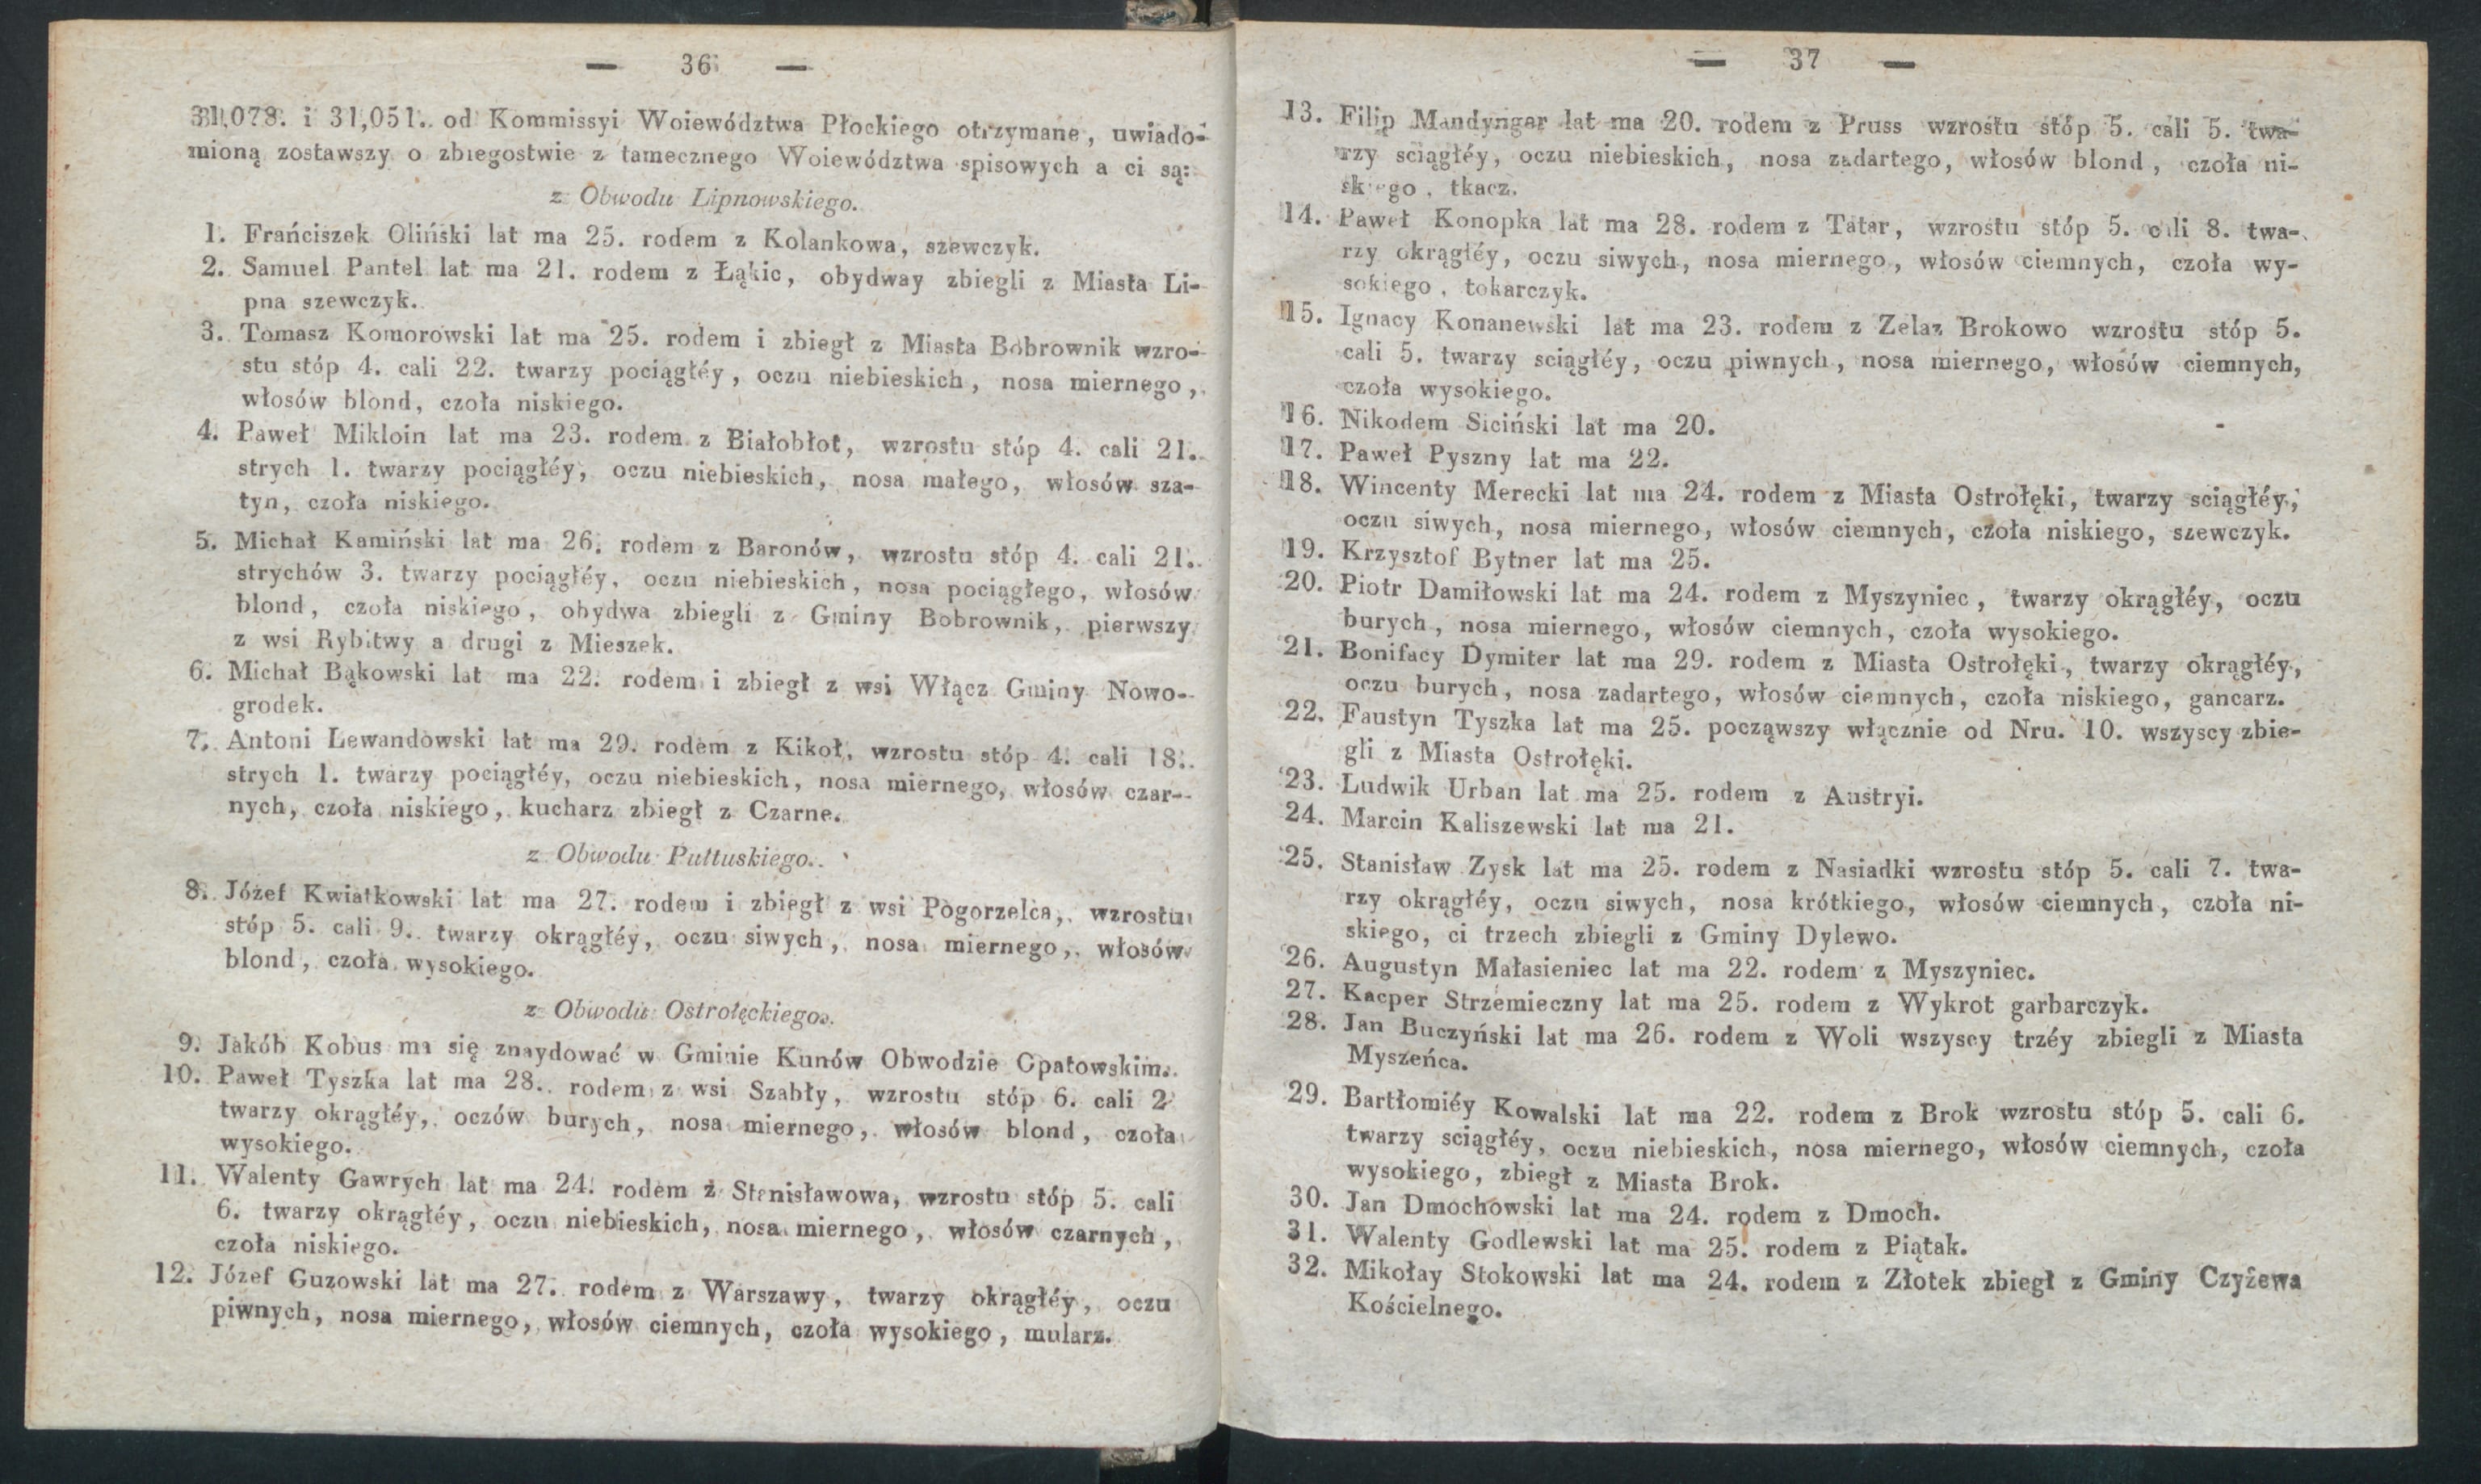 — 36 —
31,078. i 31,051. od Kommissyi Woiewództwa Płockiego otrzymane, uwiado-
mioną zostawszy o zbiegostwie z tamecznego Woiewództwa spisowych a ci są:
z Obwodu Lipnowskiego.
1. Frańciszek Oliński lat ma 25. rodem z Kolankowa, szewczyk.
2. Samuel Pantel lat ma 21. rodem z Łąkic, obydway zbiegli z Miasta Li-
pna szewczyk.
3. Tomasz Komorowski lat ma 25. rodem i zbiegł z Miasta Bobrownik wzro-
stu stóp 4. cali 22. twarzy pociągłéy, oczu niebieskich, nosa miernego,
włosów blond, czoła niskiego.
4. Paweł Mikloin lat ma 23. rodem z Białobłot, wzrostu stóp 4. cali 21.
strych 1. twarzy pociągłéy, oczu niebieskich, nosa małego, włosów sza-
tyn, czoła niskiego.
5. Michał Kamiński lat ma 26. rodem z Baronów, wzrostu stóp 4. cali 21.
strychów 3. twarzy pociągłéy, oczu niebieskich, nosa pociągłego, włosów
blond, czoła niskiego, obydwa zbiegli z Gminy Bobrownik, pierwszy
z wsi Rybitwy a drugi z Mieszek.
6. Michał Bąkowski lat ma 22. rodem i zbiegł z wsi Włącz Gminy Nowo-
grodek.
7. Antoni Lewandowski lat ma 29. rodem z Kikoł, wzrostu stóp 4. cali 18.
strych 1. twarzy pociągłéy, oczu niebieskich, nosa miernego, włosów czar-
nych, czoła niskiego, kucharz zbiegł z Czarne.
z Obwodu Pułtuskiego.
8. Józef Kwiatkowski lat ma 27. rodem i zbiegł z wsi Pogorzelca, wzrostu
stóp 5. cali 9. twarzy okrągłéy, oczu siwych, nosa miernego, włosów
blond, czoła wysokiego.
z Obwodu Ostrołęckiego.
9. Jakób Kobus ma się znaydować w Gminie Kunów Obwodzie Opatowskim.
10. Paweł Tyszka lat ma 28. rodem z wsi Szabły, wzrostu stóp 6. cali 2
twarzy okrągłéy, oczów burych, nosa miernego, włosów blond, czoła
wysokiego.
11. Walenty Gawrych lat ma 24. rodem z Stanisławowa, wzrostu stóp 5. cali
6. twarzy okrągłéy, oczu niebieskich, nosa miernego, włosów czarnych,
czoła niskiego.
12. Józef Guzowski lat ma 27. rodem z Warszawy, twarzy okrągłéy, oczu
piwnych, nosa miernego, włosów ciemnych, czoła wysokiego, mularz.
— 37 —
13. Filip Mandyngar lat ma 20. rodem z Pruss wzrostu stóp 5. cali 5. twa-
rzy sciągłéy, oczu niebieskich, nosa zadartego, włosów blond, czoła ni-
skiego, tkacz.
14. Paweł Konopka lat ma 28. rodem z Tatar, wzrostu stóp 5. cali 8. twa-
rzy okrągłéy, oczu siwych, nosa miernego, włosów ciemnych, czoła wy-
sokiego, tokarczyk.
15. Ignacy Konanewski lat ma 23. rodem z Zelaz Brokowo wzrostu stóp 5.
cali 5. twarzy sciągłéy, oczu piwnych, nosa miernego, włosów ciemnych,
czoła wysokiego.
16. Nikodem Siciński lat ma 20.
17. Paweł Pyszny lat ma 22.
18. Wincenty Merecki lat ma 24. rodem z Miasta Ostrołęki, twarzy sciągłéy,
oczu siwych, nosa miernego, włosów ciemnych, czoła niskiego, szewczyk.
19. Krzysztof Bytner lat ma 25.
20. Piotr Damiłowski lat ma 24. rodem z Myszyniec, twarzy okrągłéy, oczu
burych, nosa miernego, włosów ciemnych, czoła wysokiego.
21. Bonifacy Dymiter lat ma 29. rodem z Miasta Ostrołęki, twarzy okrągłéy,
oczu burych, nosa zadartego, włosów ciemnych, czoła niskiego, gancarz.
22. Faustyn Tyszka lat ma 25. począwszy włącznie od Nru. 10. wszyscy zbie-
gli z Miasta Ostrołęki.
23. Ludwik Urban lat ma 25. rodem z Austryi.
24. Marcin Kaliszewski lat ma 21.
25. Stanisław Zysk lat ma 25. rodem z Nasiadki wzrostu stóp 5. cali 7. twa-
rzy okrągłéy, oczu siwych, nosa krótkiego, włosów ciemnych, czoła ni-
skiego, ci trzech zbiegli z Gminy Dylewo.
26. Augustyn Małasieniec lat ma 22. rodem z Myszyniec.
27. Kacper Strzemieczny lat ma 25. rodem z Wykrot garbarczyk.
28. Jan Buczyński lat ma 26. rodem z Woli wszyscy trzéy zbiegli z Miasta
Myszeńca.
29. Bartłomiéy Kowalski lat ma 22. rodem z Brok wzrostu stóp 5. cali 6.
twarzy sciągłéy, oczu niebieskich, nosa miernego, włosów ciemnych, czoła
wysokiego, zbiegł z Miasta Brok.
30. Jan Dmochowski lat ma 24. rodem z Dmoch.
31. Walenty Godlewski lat ma 25. rodem z Piątak.
32. Mikołay Stokowski lat ma 24. rodem z Złotek zbiegł z Gminy Czyżewa
Kościelnego.